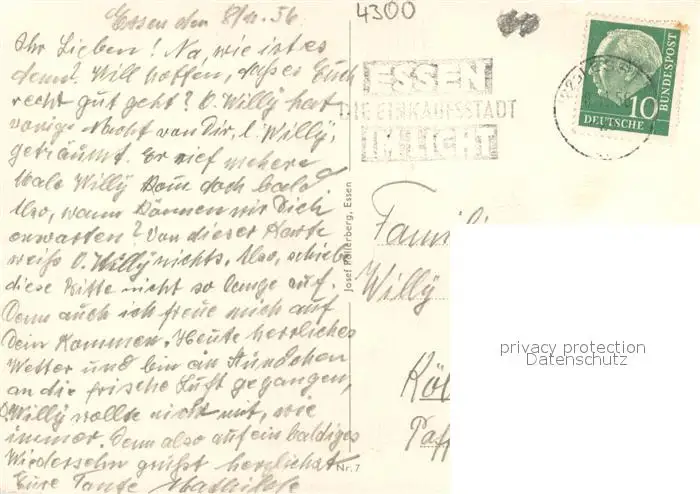 Essen den 8/11. 56
Ihr Lieben! Na, wie ist es
denn? Will hoffen, daß es Euch
recht gut geht? O. Willy hat
vorige Nacht von Dir, l. Willy,
geträumt. Er rief mehere
Male Willy komm doch bald.
Also, wann können wir Dich
erwarten? Von dieser Karte
weiß O. Willy nichts. Also, schiebe
diese Bitte nicht so lange auf.
Denn auch ich freue mich auf
Dein Kommen. Heute herrliches
Wetter und bin ein Stündchen
an die frische Luft gegangen,
O. Willy wollte nicht mit, wie
immer. Denn also auf ein baldiges
Wiedersehn grüßt herzlichst
Eure Tante Mathilde
4300
ESSEN
DIE EINKAUFSSTADT
IM LICHT
10
DEUTSCHE
BUNDESPOST
Josef Hallerberg, Essen
Nr. 7
Famili
Willy
Köl
privacy protection
Datenschutz